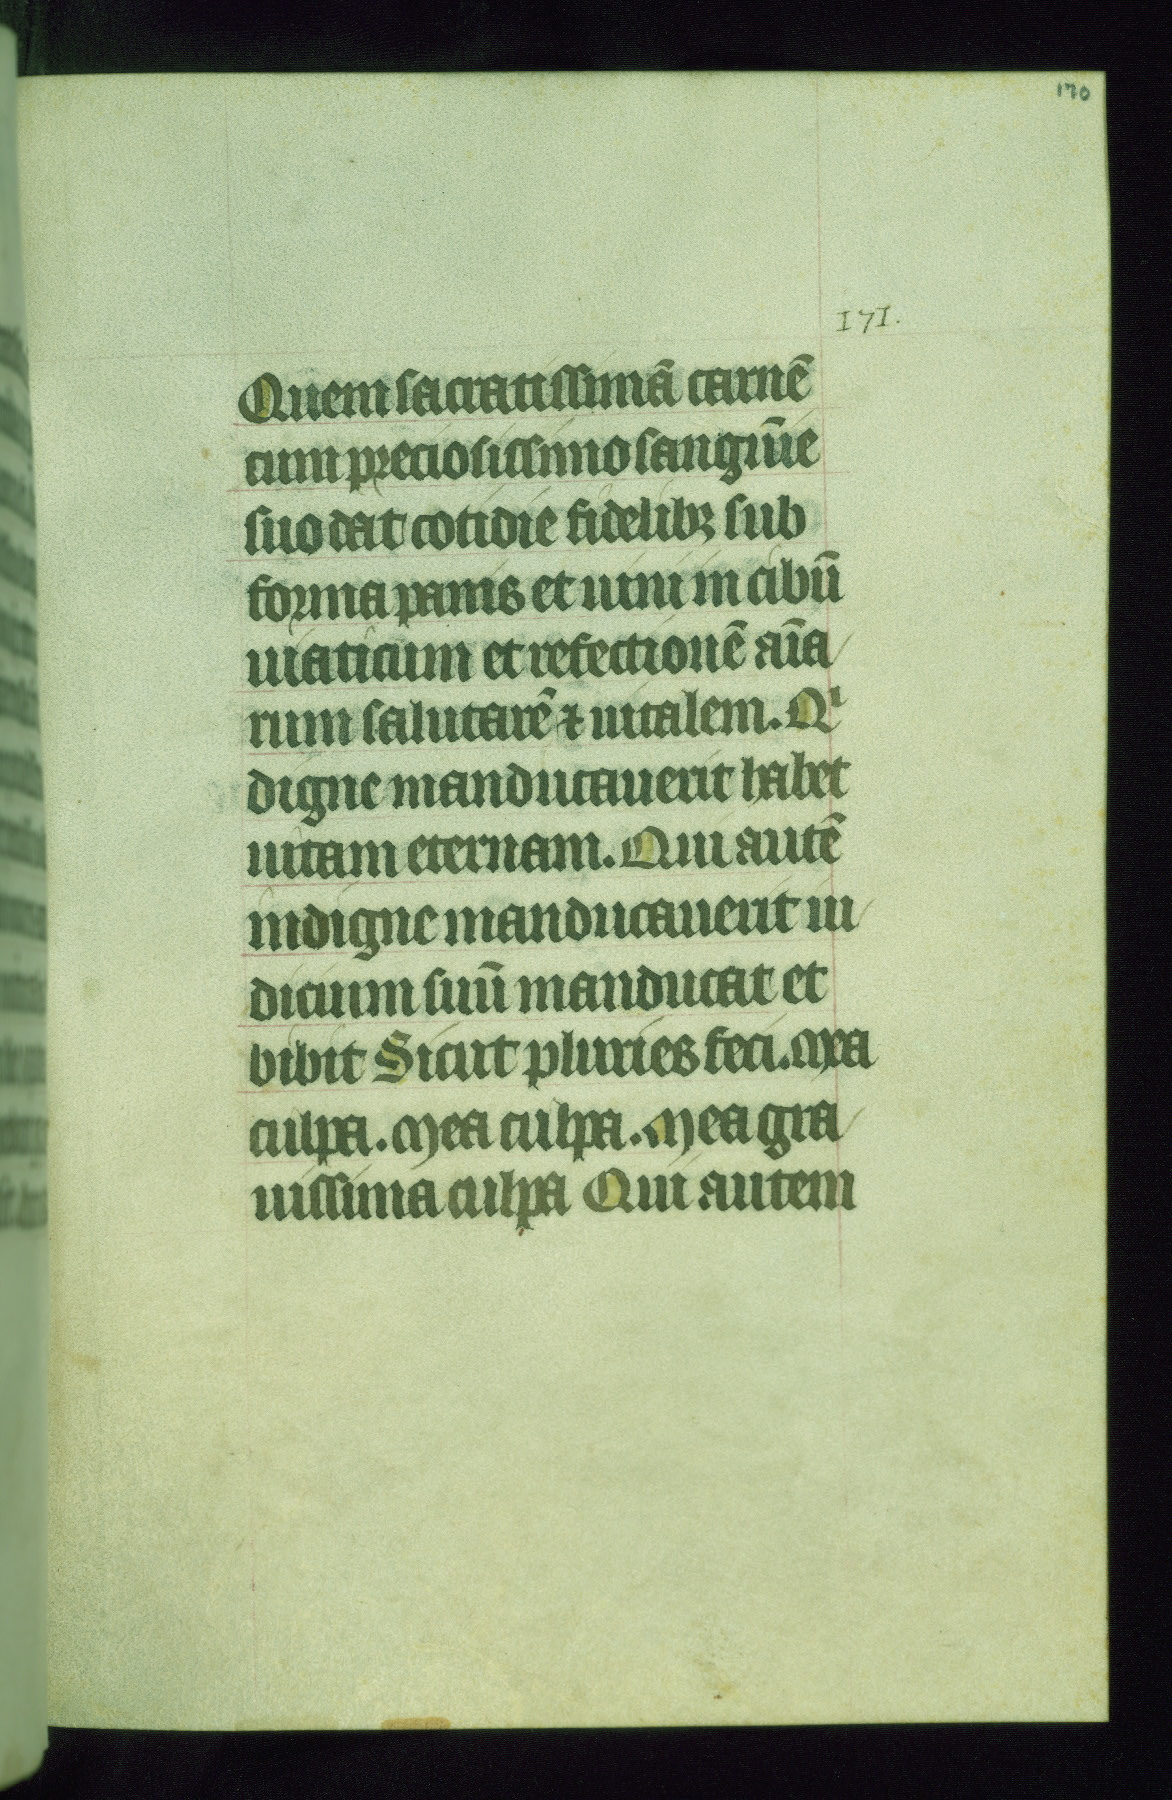 170
171.
Quem sacratissimā carnē
cum preciosissimo sangīe
suo dat cotidie fidelibꝫ sub
forma panis et uini in cibū
uiaticum et refectionē aīa
rum salutarē ⁊ uitalem. Qⁱ
digne manducauerit habet
uitam eternam. Qui autē
indigne manducauerit iu
dicium suū manducat et
bibit Sicut pluries feci. Mea
culpa. Mea culpa. Mea gra
uissima culpa Qui autem